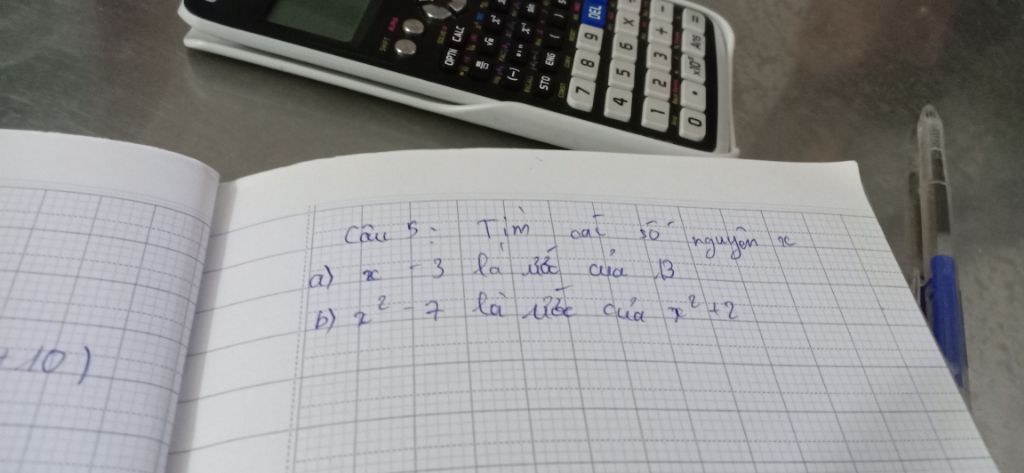 OPTN CALC
(-) sin
STO ENG (
7 8 9 DEL
4 5 6 ×
1 2 3 +
0 . ×10ˣ Ans =
Câu 5: Tìm các số nguyên x
a) x - 3 là ước của 13
b) x² - 7 là ước của x² + 2
+ 10)